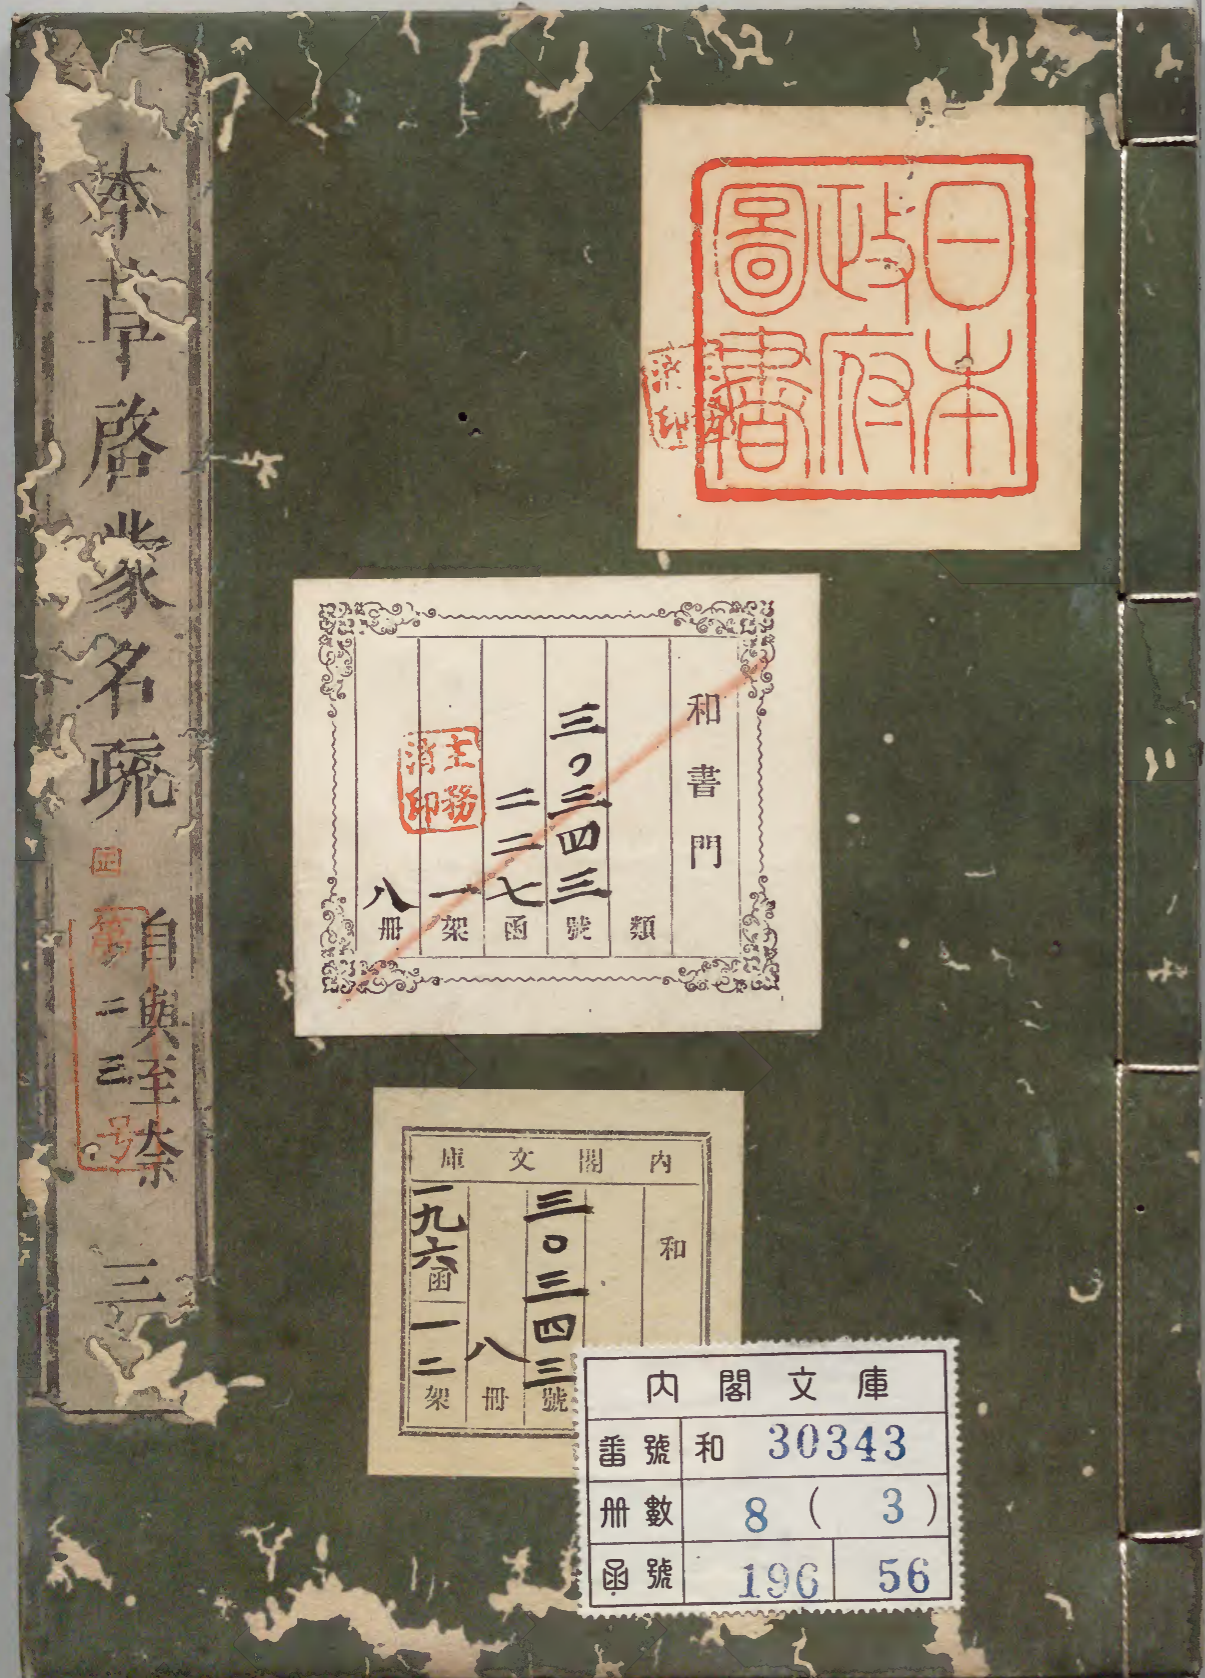 本草啓蒙名疏
自與至奈
三
第二三号
日本
政府
圖書
主務
濟印
和書門
類
三〇三四三號
二二七函
一架
八冊
內閣文庫
和
三〇三四三號
八冊
一九六函
一二架
內閣文庫
番號 和 30343
冊數 8 ( 3 )
函號 196 56